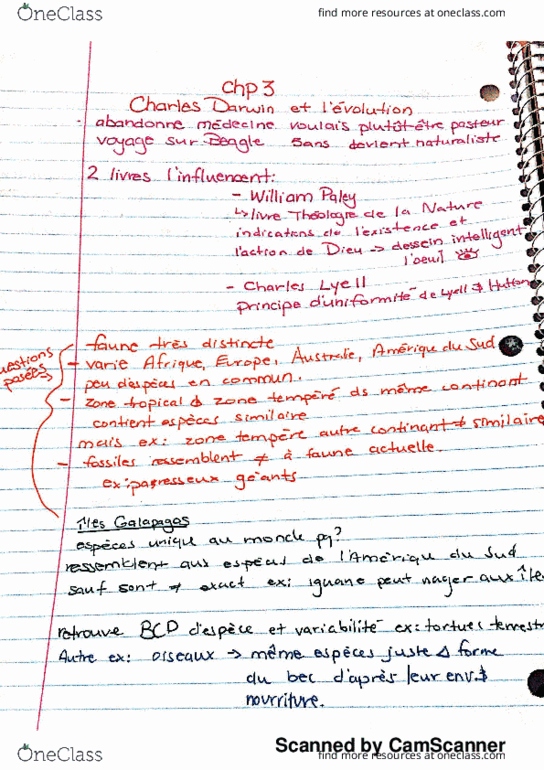 OneClass
find more resources at oneclass.com
Chp 3
Charles Darwin et l'évolution
- abandonne médecine voulais plutôt être pasteur
voyage sur Beagle 5ans devient naturaliste
2 livres l'influencent:
- William Paley
↳ livre Théologie de la Nature
indications de l'existence et
l'action de Dieu → dessein intelligent
l'oeuil
- Charles Lyell
principe d'uniformité de Lyell & Hutton
questions
posées
- faune très distincte
- varie Afrique, Europe, Australie, Amérique du Sud
peu d'espèces en commun.
- zone tropical & zone tempéré ds même continant
contient espèces similaire
mais ex: zone tempère autre continant ≠ similaire
- fossiles ressemblent ≠ à faune actuelle.
ex: paresseux géants
îles Galapagos
espèces unique au monde pq?
ressemblent aux espèces de l'Amérique du Sud
sauf sont ≠ exact ex: iguane peut nager aux île
retrouve BCD d'espèce et variabilité ex: tortues terrestr
Autre ex: oiseaux → même espèces juste Δ forme
du bec d'après leur env. &
nourriture.
Scanned by CamScanner
OneClass
find more resources at oneclass.com